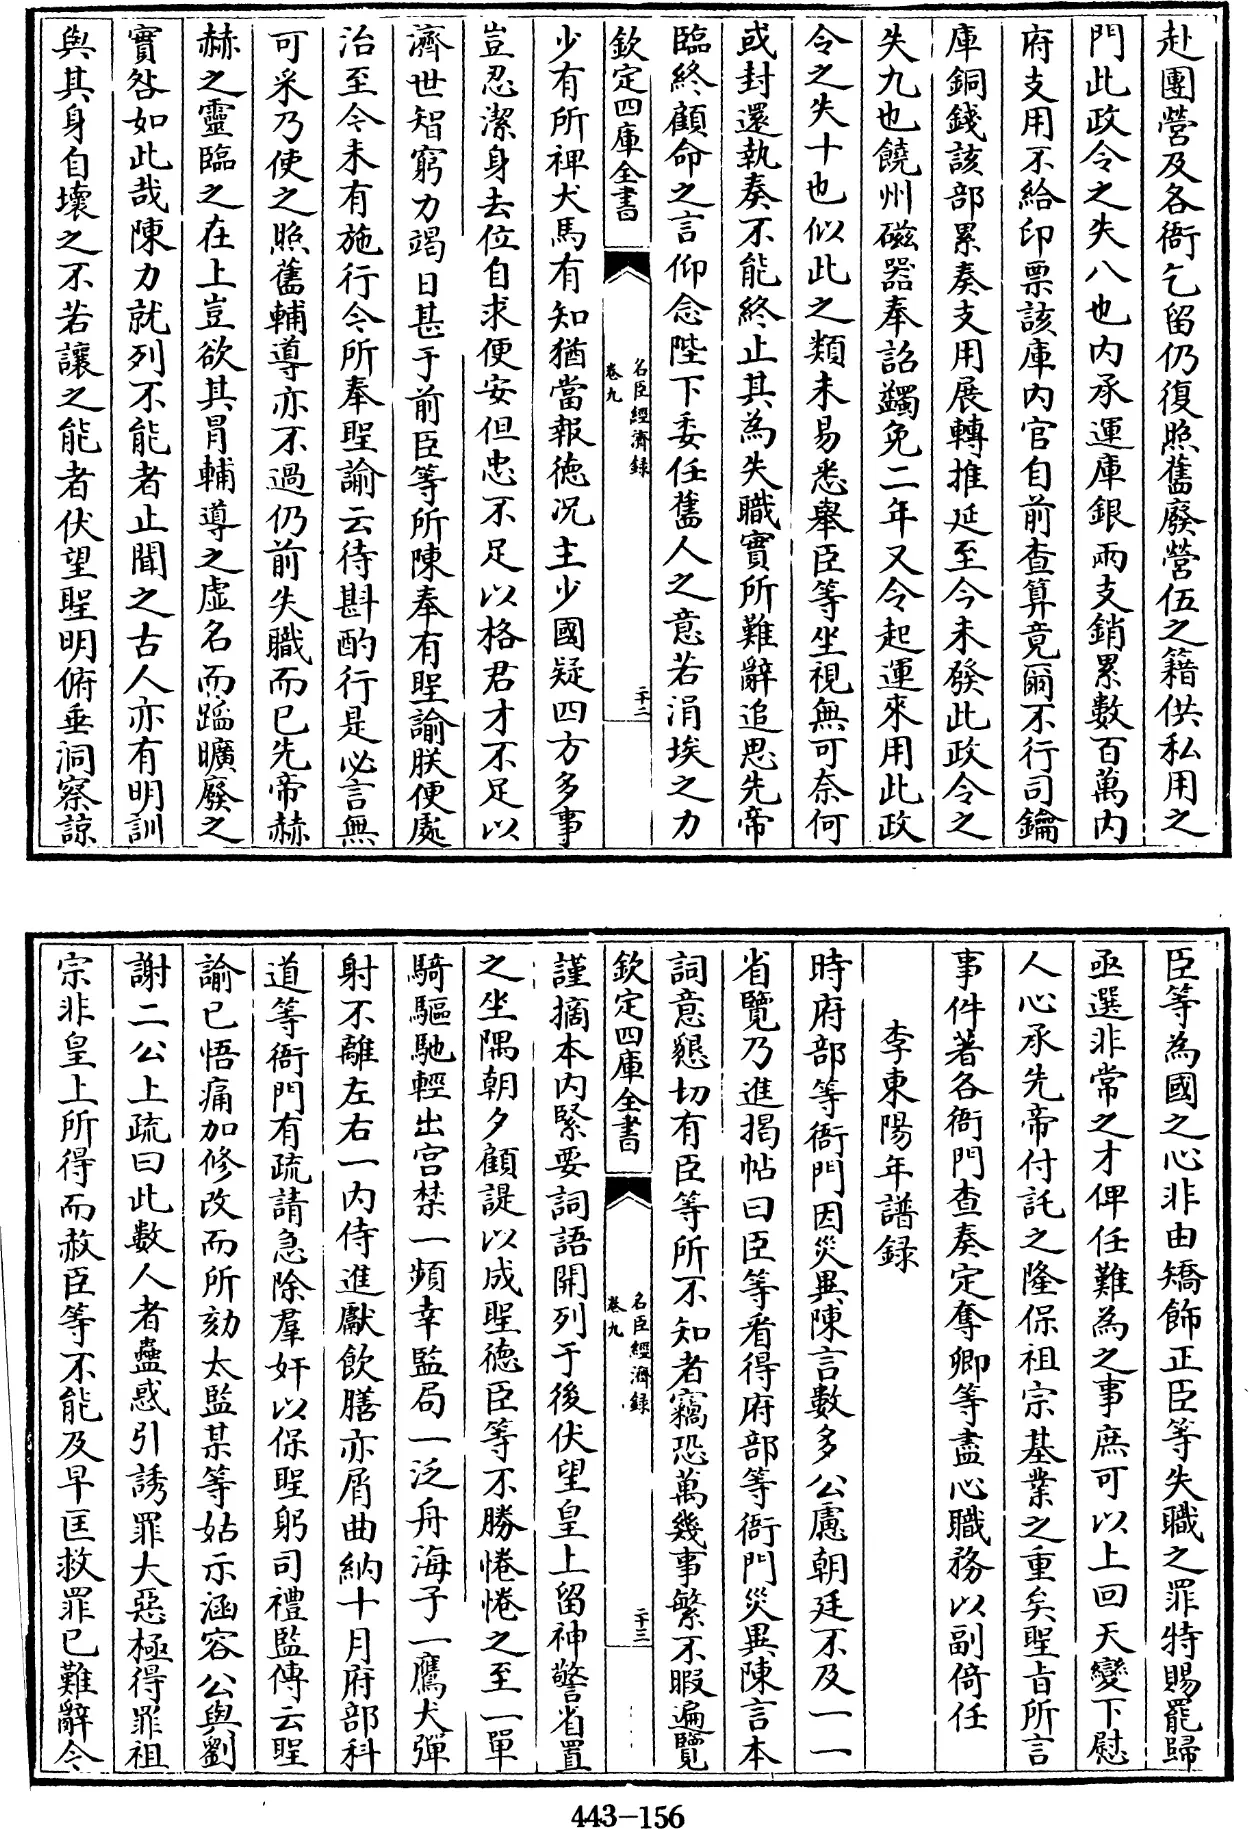 赴團營及各衙乞留仍復照舊廢營伍之籍供私用之
門此政令之失八也内承運庫銀兩支銷累數百萬内
府支用不給印票該庫内官自前查算竟爾不行司鑰
庫銅錢該部累奏支用展轉推延至今未發此政令之
失九也饒州磁器奉詔蠲免二年又令起運來用此政
令之失十也似此之類未易悉舉臣等坐視無可奈何
或封還執奏不能終止其為失職實所難辭追思先帝
臨終顧命之言仰念陛下委任舊人之意若涓埃之力
欽定四庫全書
名臣經濟録
卷九
二十二
少有所裨犬馬有知猶當報徳况主少國疑四方多事
豈忍潔身去位自求便安但忠不足以格君才不足以
濟世智窮力竭日甚于前臣等所陳奉有聖諭朕便處
治至今未有施行今所奉聖諭云待斟酌行是必言無
可采乃使之照舊輔導亦不過仍前失職而已先帝赫
赫之靈臨之在上豈欲其冐輔導之虚名而蹈曠廢之
實咎如此哉陳力就列不能者止聞之古人亦有明訓
與其身自壊之不若讓之能者伏望聖明俯垂洞察諒
臣等為國之心非由矯飾正臣等失職之罪特賜罷歸
亟選非常之才俾任難為之事庶可以上回天變下慰
人心承先帝付託之隆保祖宗基業之重矣聖旨所言
事件著各衙門查奏定奪卿等盡心職務以副倚任
李東陽年譜録
時府部等衙門因災異陳言數多公慮朝廷不及一一
省覽乃進揭帖曰臣等看得府部等衙門災異陳言本
詞意懇切有臣等所不知者竊恐萬幾事繁不暇遍覽
欽定四庫全書
名臣經濟録
卷九
二十三
謹摘本内緊要詞語開列于後伏望皇上留神警省置
之坐隅朝夕顧諟以成聖徳臣等不勝惓惓之至一單
騎驅馳輕出宫禁一頻幸監局一泛舟海子一鷹犬彈
射不離左右一内侍進獻飲膳亦屑曲納十月府部科
道等衙門有疏請急除羣奸以保聖躬司禮監傳云聖
諭已悟痛加修改而所劾太監某等姑示涵容公與劉
謝二公上疏曰此數人者蠱惑引誘罪大惡極得罪祖
宗非皇上所得而赦臣等不能及早匡救罪已難辭今
443-156